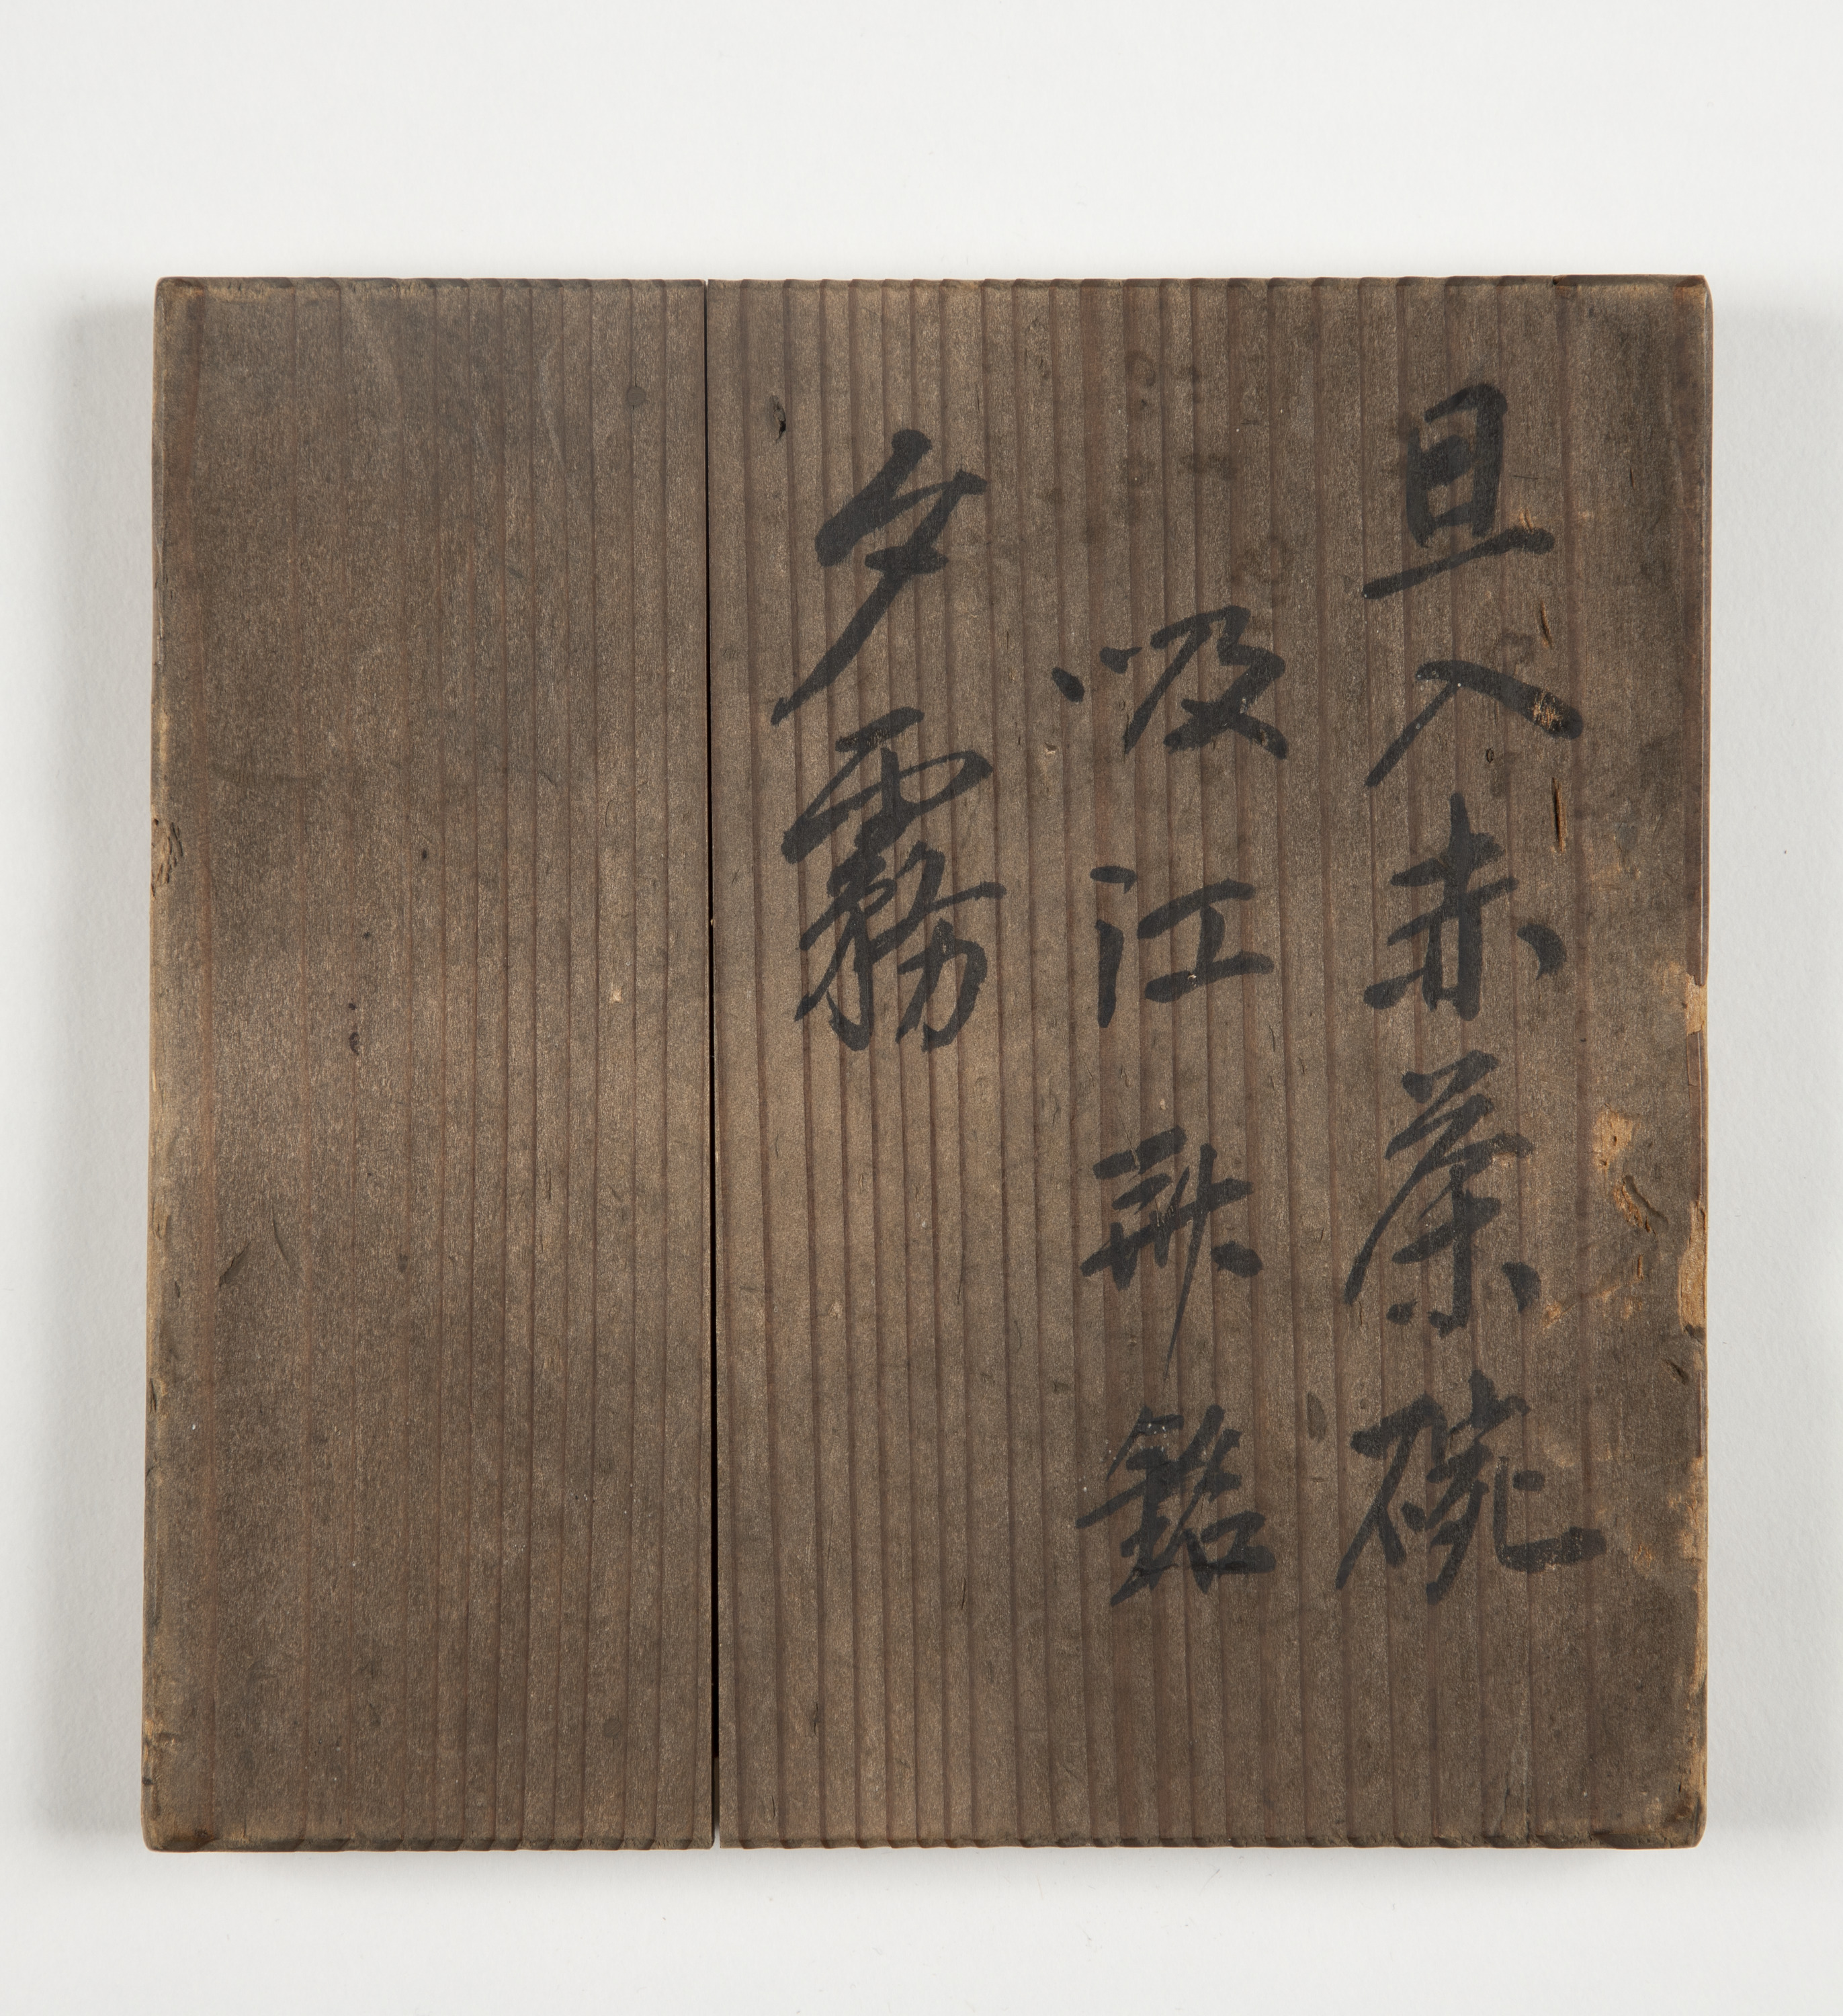 旦入赤茶碗
吸江斎銘
夕霧